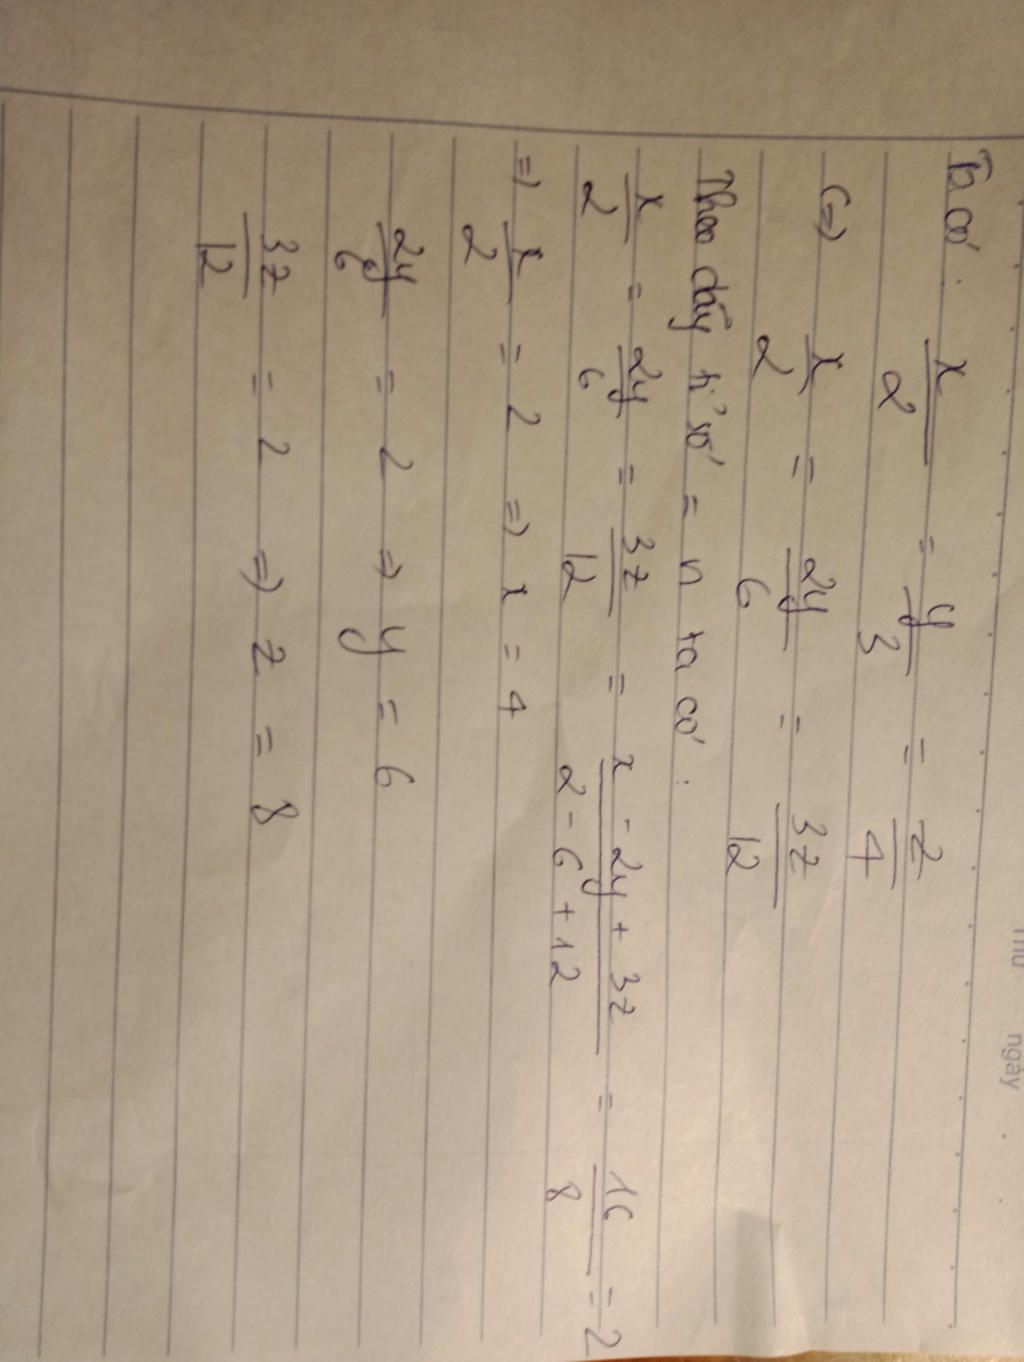 Thứ ngày
Ta có: x/2 = y/3 = z/4
(=) x/2 = 2y/6 = 3z/12
Theo dãy tỉ số = n ta có:
x/2 = 2y/6 = 3z/12 = x - 2y + 3z/2 - 6 + 12 = 16/8 = 2
=) x/2 = 2 =) x = 4
2y/6 = 2 =) y = 6
3z/12 = 2 =) z = 8